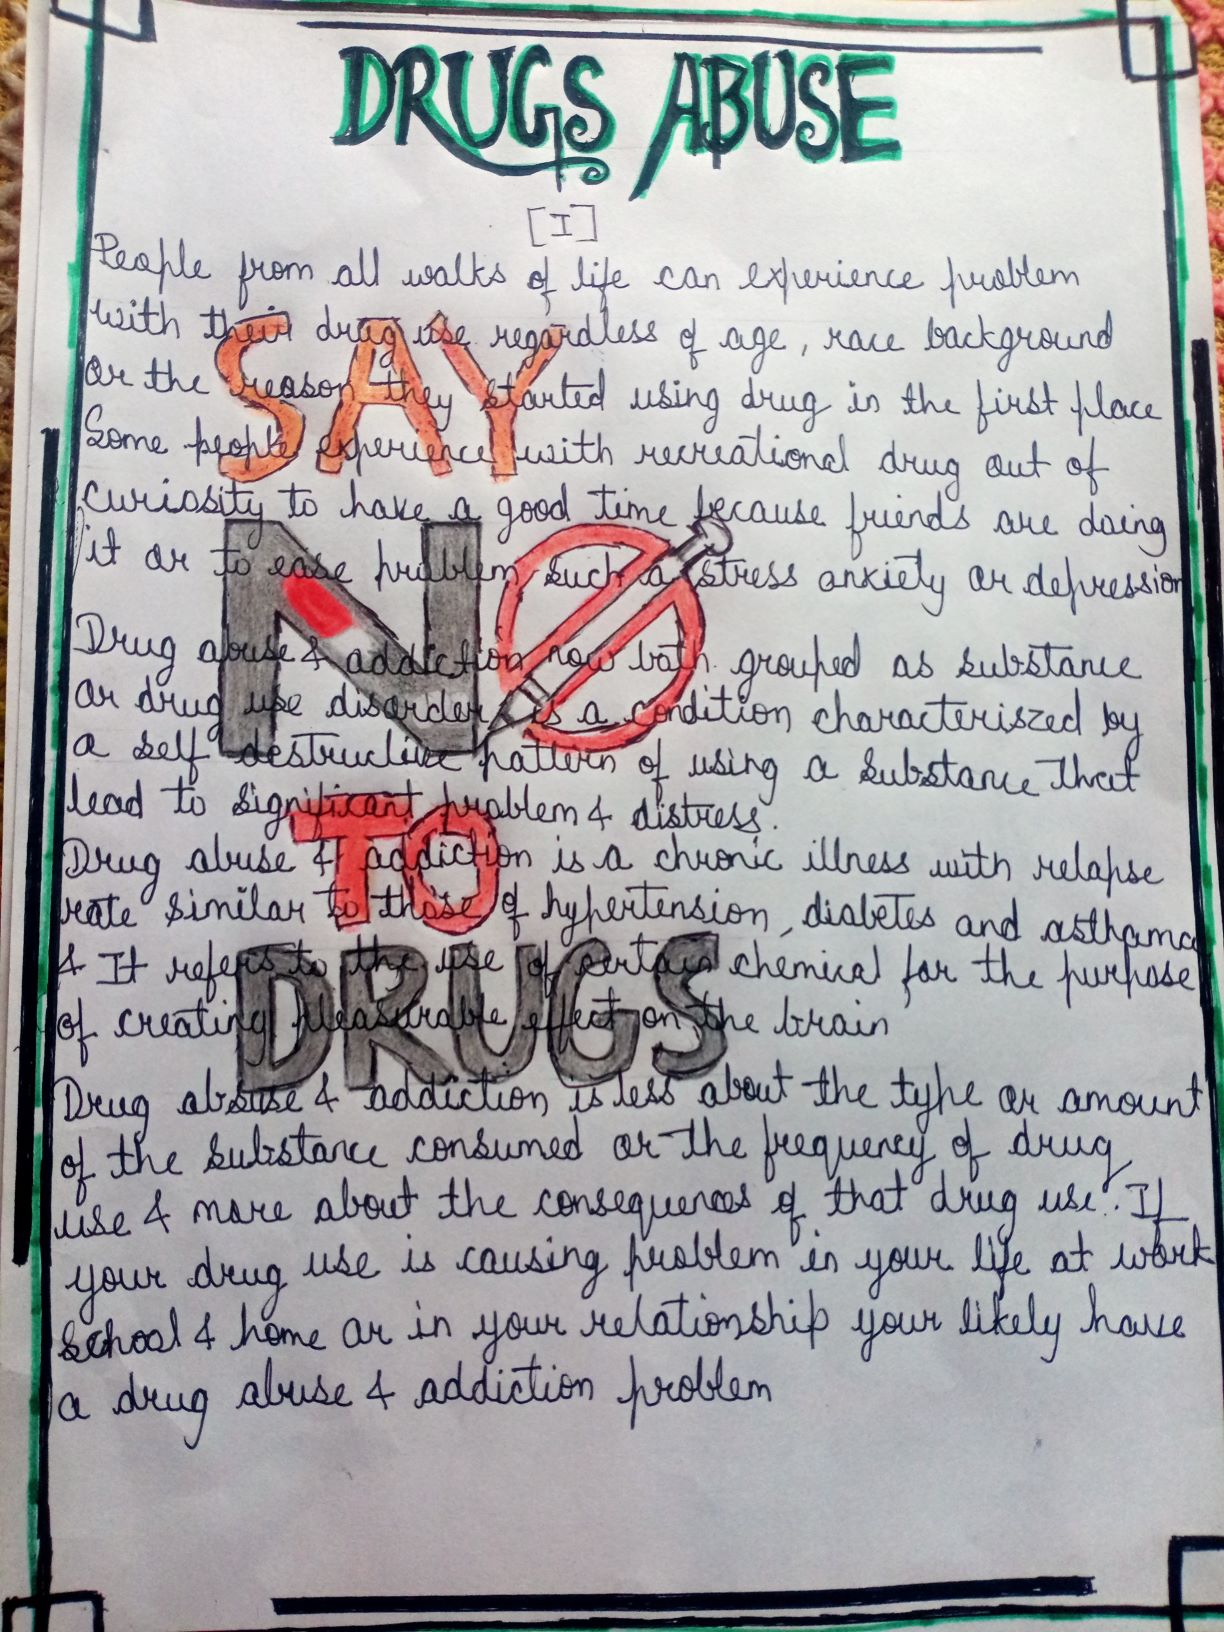 DRUGS ABUSE
[I]
People from all walks of life can experience problem
with their drug use regardless of age, race background
or the reason they started using drug in the first place
Some people experience with recreational drug out of
curiosity to have a good time because friends are doing
it or to ease problem such a stress anxiety or depression
Drug abuse & addiction now both grouped as substance
or drug use disorder, is a condition characteriszed by
a self destructive pattern of using a substance that
lead to significant problem & distress.
Drug abuse & addiction is a chronic illness with relapse
rate similar to those of hypertension, diabetes and asthama
& It refers to the use of certain chemical for the purpose
of creating pleasurable effect on the brain
Drug abuse & addiction is less about the type or amount
of the substance consumed or the frequency of drug
use & more about the consequences of that drug use. If
your drug use is causing problem in your life at work
school & home or in your relationship your likely have
a drug abuse & addiction problem
SAY
NO
TO
DRUGS